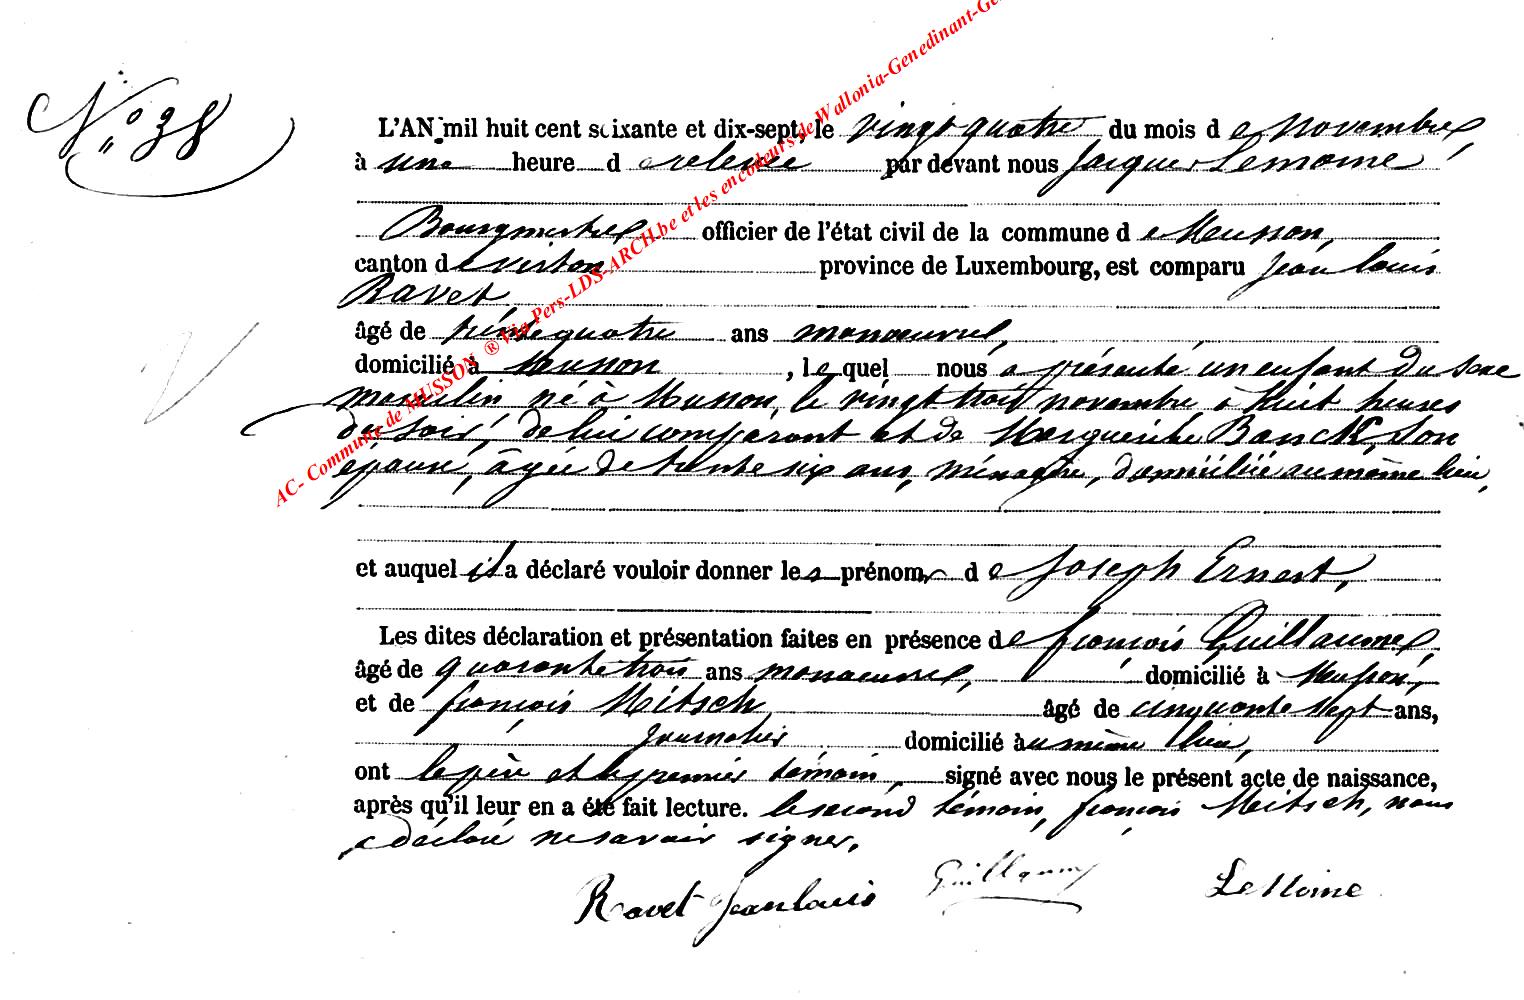 N° 38
L'AN mil huit cent soixante et dix-sept, le vingt quatre du mois de novembre,
à une heure de relevée par devant nous Jacques Lemoine
Bourgmestre officier de l'état civil de la commune de Musson,
canton de virton province de Luxembourg, est comparu Jean louis
Ravet,
âgé de trente quatre ans manœuvre,
domicilié à Musson, lequel nous a présenté un enfant du sexe
masculin né à Musson, le vingt trois novembre à huit heures
du soir, de lui comparant et de Marguerite Banck, son
épouse, âgée de trente six ans, ménagère, domiciliée au même lieu,
et auquel il a déclaré vouloir donner les prénoms de Joseph Ernest,
Les dites déclaration et présentation faites en présence de françois Guillaume,
âgé de quarante trois ans manœuvre, domicilié à Musson,
et de françois Mitsch, âgé de cinquante sept ans,
journalier domicilié au même lieu,
ont le père et le premier témoin, signé avec nous le présent acte de naissance,
après qu'il leur en a été fait lecture. le second témoin, françois Mitsch, nous
a déclaré ne savoir signer.
Ravet Jean louis Guillaume LeMoine
AC- Commune de MUSSON ® Via Pers-LDS-ARCH.be et les encodeurs de Wallonia-Genedinant-Ge